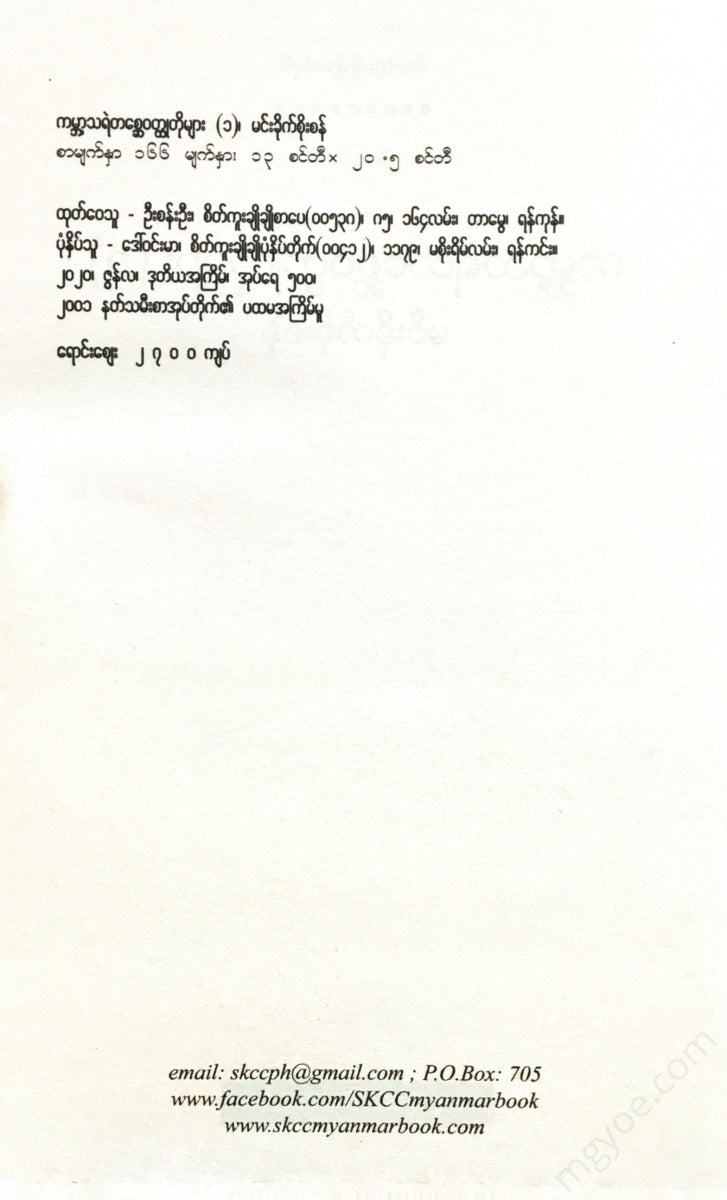 ကမ္ဘာ့သရဲတစ္ဆေဝတ္ထုတိုများ (၁)၊ မင်းခိုက်စိုးစန်
စာမျက်နှာ ၁၆၆ မျက်နှာ၊ ၁၃ စင်တီ× ၂၀.၅ စင်တီ
ထုတ်ဝေသူ - ဦးစန်းဦး၊ စိတ်ကူးချိုချိုစာပေ(၀၀၅၃၈)၊ ၈၅၊ ၁၆၄လမ်း၊ တာမွေ၊ ရန်ကုန်။
ပုံနှိပ်သူ - ဒေါ်ဝင်းမာ၊ စိတ်ကူးချိုချိုပုံနှိပ်တိုက်(၀၀၄၁၂)၊ ၁၁၇၉၊ မစိုးရိမ်လမ်း၊ ရန်ကင်း။
၂၀၂၀၊ ဇွန်လ၊ ဒုတိယအကြိမ်၊ အုပ်ရေ ၅၀၀၊
၂၀၀၁ နတ်သမီးစာအုပ်တိုက်၏ ပထမအကြိမ်မူ
ရောင်းဈေး ၂၇၀၀ ကျပ်
email: skccph@gmail.com ; P.O.Box: 705
www.facebook.com/SKCCmyanmarbook
www.skccmyanmarbook.com
mgyoe.com